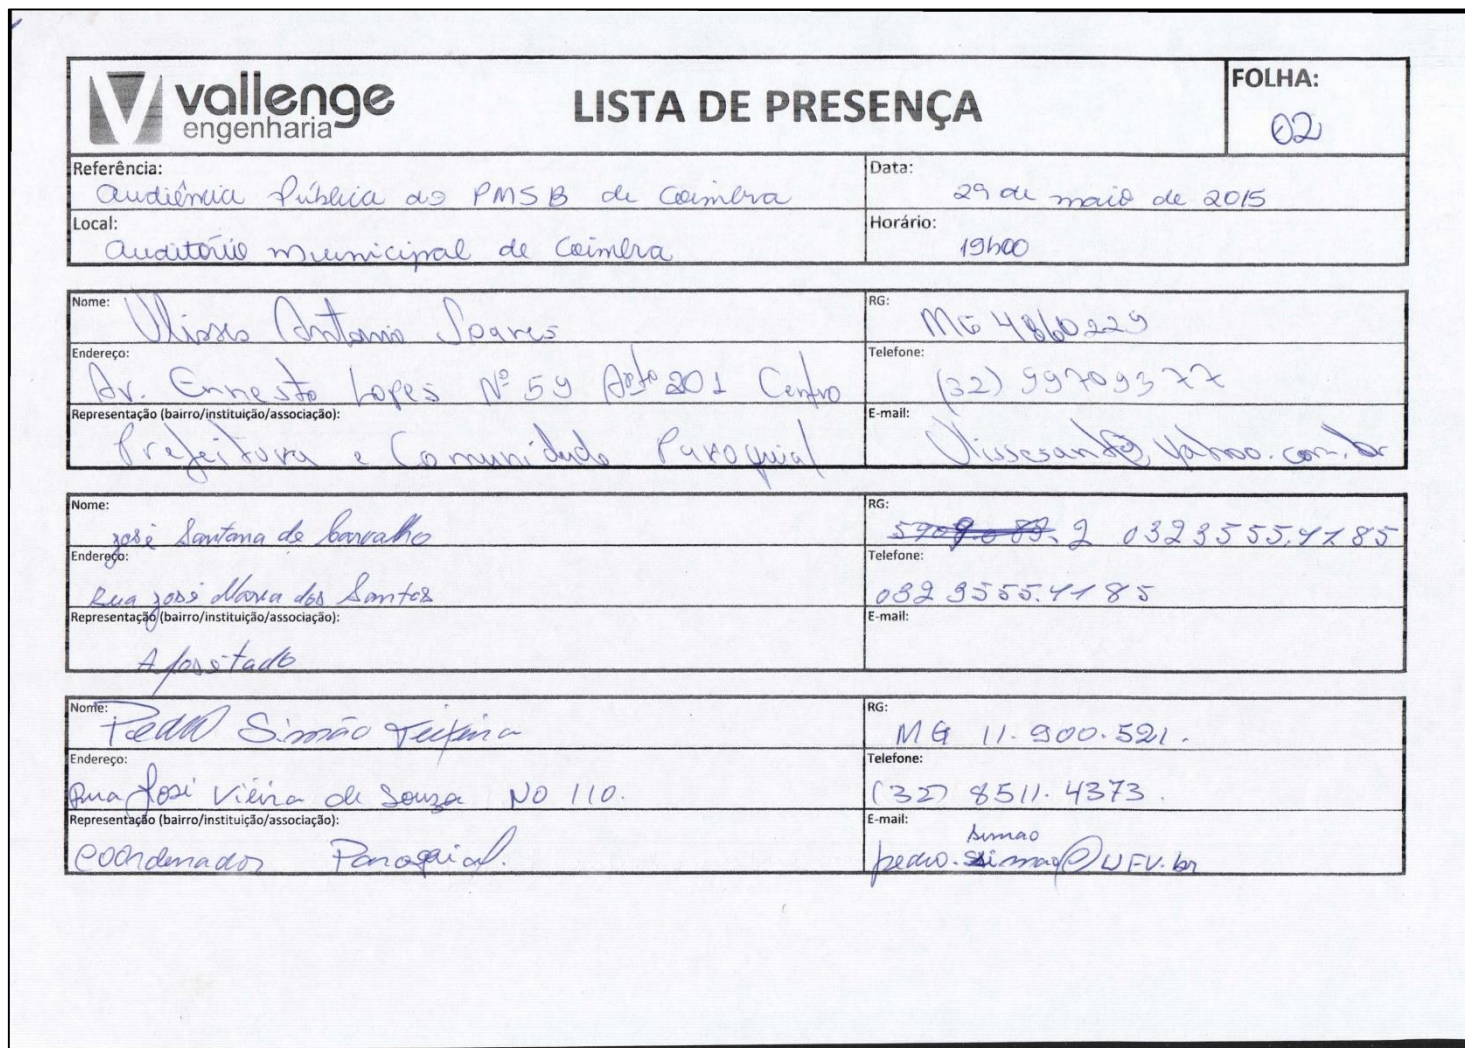 vallenge
engenharia
LISTA DE PRESENÇA
FOLHA:
02
Referência:
Audiência Pública do PMSB de Coimbra
Data:
29 de maio de 2015
Local:
Auditório municipal de Coimbra
Horário:
19h00
Nome:
Ulisses Antonio Soares
RG:
MG 4860229
Endereço:
Av. Ernesto Lopes Nº 59 Apto 201 Centro
Telefone:
(32) 99709377
Representação (bairro/instituição/associação):
Prefeitura e Comunidade Paroquial
E-mail:
Ulissesant@yahoo.com.br
Nome:
José Santana de Carvalho
RG:
032 3555.4185
Endereço:
Rua José Maria dos Santos
Telefone:
032 3555.4185
Representação (bairro/instituição/associação):
Aposetado
E-mail:
Nome:
Pedro Simão Teixeira
RG:
MG 11.900.521.
Endereço:
Rua José Vieira de Souza NO 110.
Telefone:
(32) 8511.4373.
Representação (bairro/instituição/associação):
Coordenador Paroquial.
E-mail:
simao
pedro.simao@UFV.br